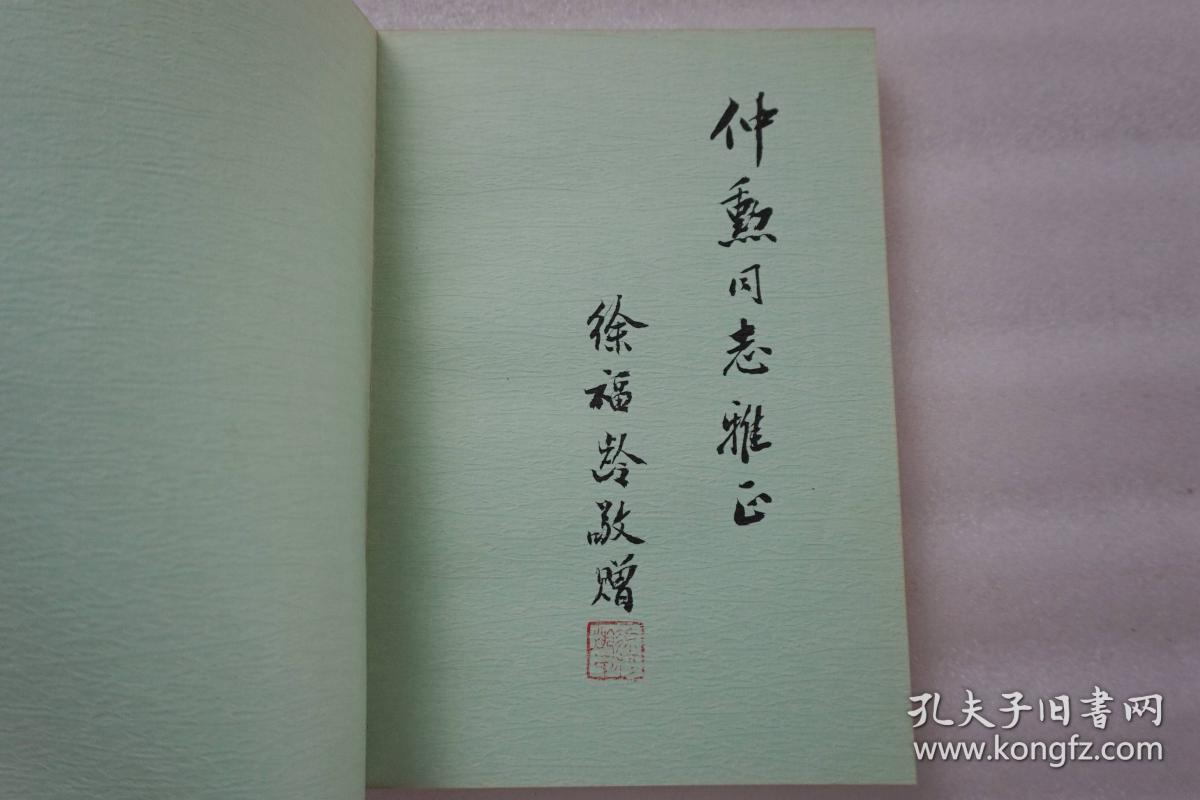 仲勳同志雅正
徐福龄敬赠
孔夫子旧書网
www.kongfz.com